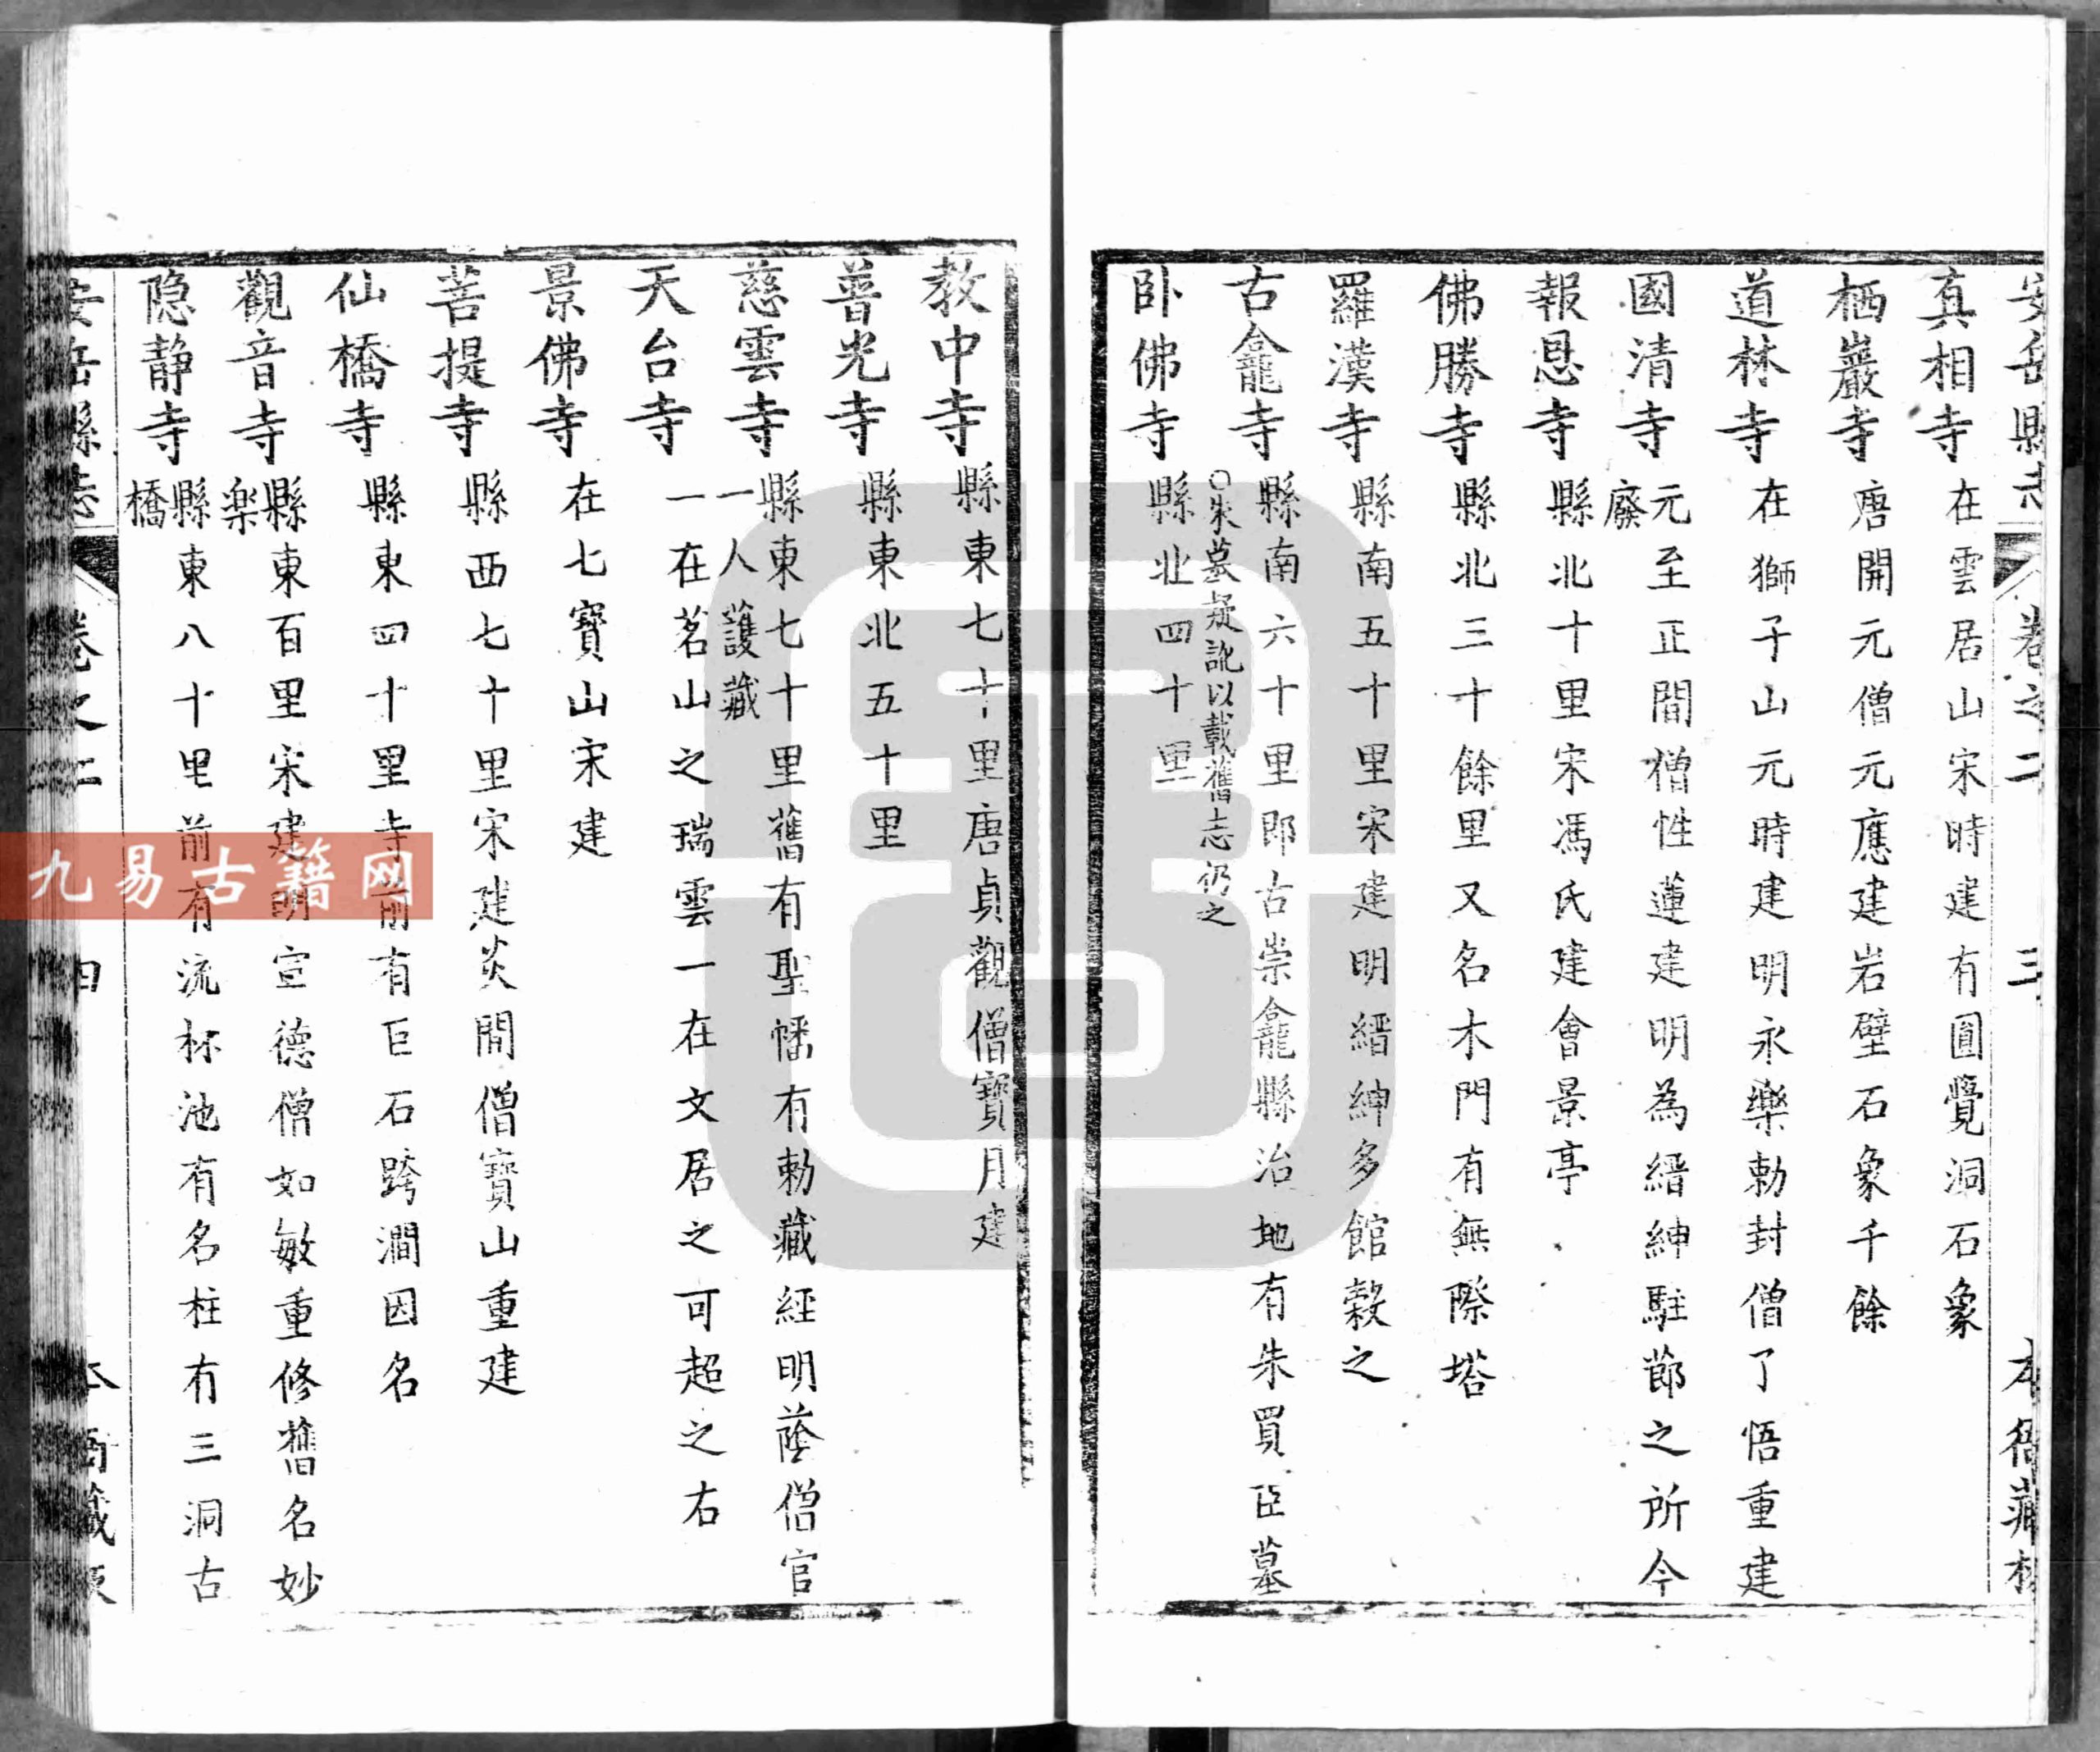 安岳縣志 卷之二 三 本衙藏板
真相寺 在雲居山宋時建有圓覺洞石象
栖巖寺 唐開元僧元應建岩壁石象千餘
道林寺 在獅子山元時建明永樂勅封僧了悟重建
國清寺 元至正間僧性蓮建明為縉紳駐節之所今
廢
報恩寺 縣北十里宋馮氏建會景亭
佛勝寺 縣北三十餘里又名木門有無際塔
羅漢寺 縣南五十里宋建明縉紳多館穀之
古龕寺 縣南六十里即古崇龕縣治地有朱買臣墓
○朱墓疑訛以載舊志仍之
卧佛寺 縣北四十里
教中寺 縣東七十里唐貞觀僧寶月建
普光寺 縣東北五十里
慈雲寺 縣東七十里舊有聖幡有勅藏經明蔭僧官
一人護藏
天台寺 一在茗山之瑞雲一在文居之可超之右
景佛寺 在七寶山宋建
菩提寺 縣西七十里宋建炎間僧寶山重建
仙橋寺 縣東四十里寺前有巨石跨澗因名
觀音寺 縣東百里宋建明宣德僧如敏重修舊名妙
楽
隐静寺 縣東八十里前有流杯池有名柱有三洞古
橋
安岳縣志 卷之二 四 本衙藏板
九易古籍网